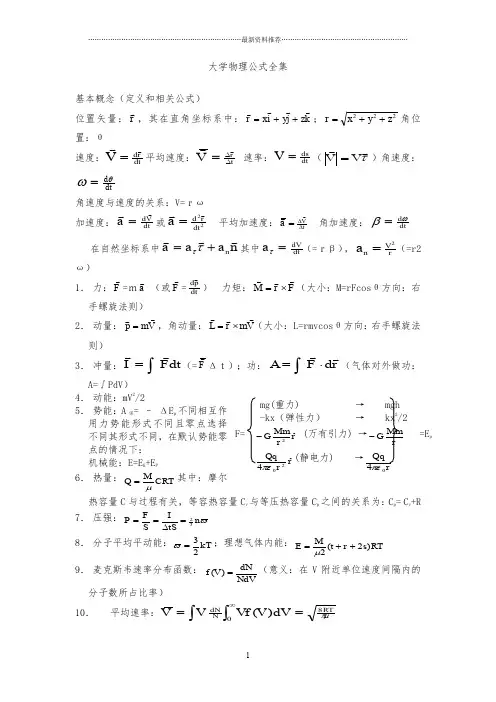 最新资料推荐
大学物理公式全集
基本概念（定义和相关公式）
位置矢量：r⃗，其在直角坐标系中：r⃗ = xi⃗ + yj⃗ + zk⃗；r = √(x² + y² + z²) 角位
置：θ
速度：V⃗ = dr⃗/dt 平均速度：V⃗ = Δr⃗/Δt 速率：V = ds/dt（|V⃗| = Vτ⃗）角速度：
ω = dθ/dt
角速度与速度的关系：V=rω
加速度：a⃗ = dV⃗/dt 或 a⃗ = d²r⃗/dt² 平均加速度：a⃗ = ΔV⃗/Δt 角加速度：β = dω/dt
在自然坐标系中 a⃗ = a_τ τ⃗ + a_n n⃗ 其中 a_τ = dV/dt（=rβ），a_n = V²/r（=r2
ω）
1． 力：F⃗=ma⃗ （或F⃗= dp⃗/dt） 力矩：M⃗ = r⃗ × F⃗（大小：M=rFcosθ方向：右
手螺旋法则）
2． 动量：p⃗ = mV⃗，角动量：L⃗ = r⃗ × mV⃗（大小：L=rmvcosθ方向：右手螺旋法
则）
3． 冲量：I⃗ = ∫ F⃗dt（=F⃗Δt）；功：A = ∫ F⃗ · dr⃗（气体对外做功：
A=∫PdV）
4． 动能：mV²/2
5． 势能：A保= – ΔEp不同相互作
用力势能形式不同且零点选择
不同其形式不同，在默认势能零
点的情况下：
机械能：E=EK+EP
F=
mg(重力) → mgh
-kx（弹性力） → kx²/2
−G Mm/r² r̂ (万有引力) → −G Mm/r =Ep
Qq/4πε₀r² r̂ (静电力) → Qq/4πε₀r
6． 热量：Q = M/μ CRT 其中：摩尔
热容量C与过程有关，等容热容量Cv与等压热容量Cp之间的关系为：Cp= Cv+R
7． 压强：P = F/S = I/ΔtS = 2/3 nϖ
8． 分子平均平动能：ϖ = 3/2 kT；理想气体内能：E = M/μ2 (t + r + 2s)RT
9． 麦克斯韦速率分布函数：f(V) = dN/NdV（意义：在V附近单位速度间隔内的
分子数所占比率）
10． 平均速率：V = ∫V dN/N ∫₀^∞ Vf(V)dV = √(8RT/πμ)
1